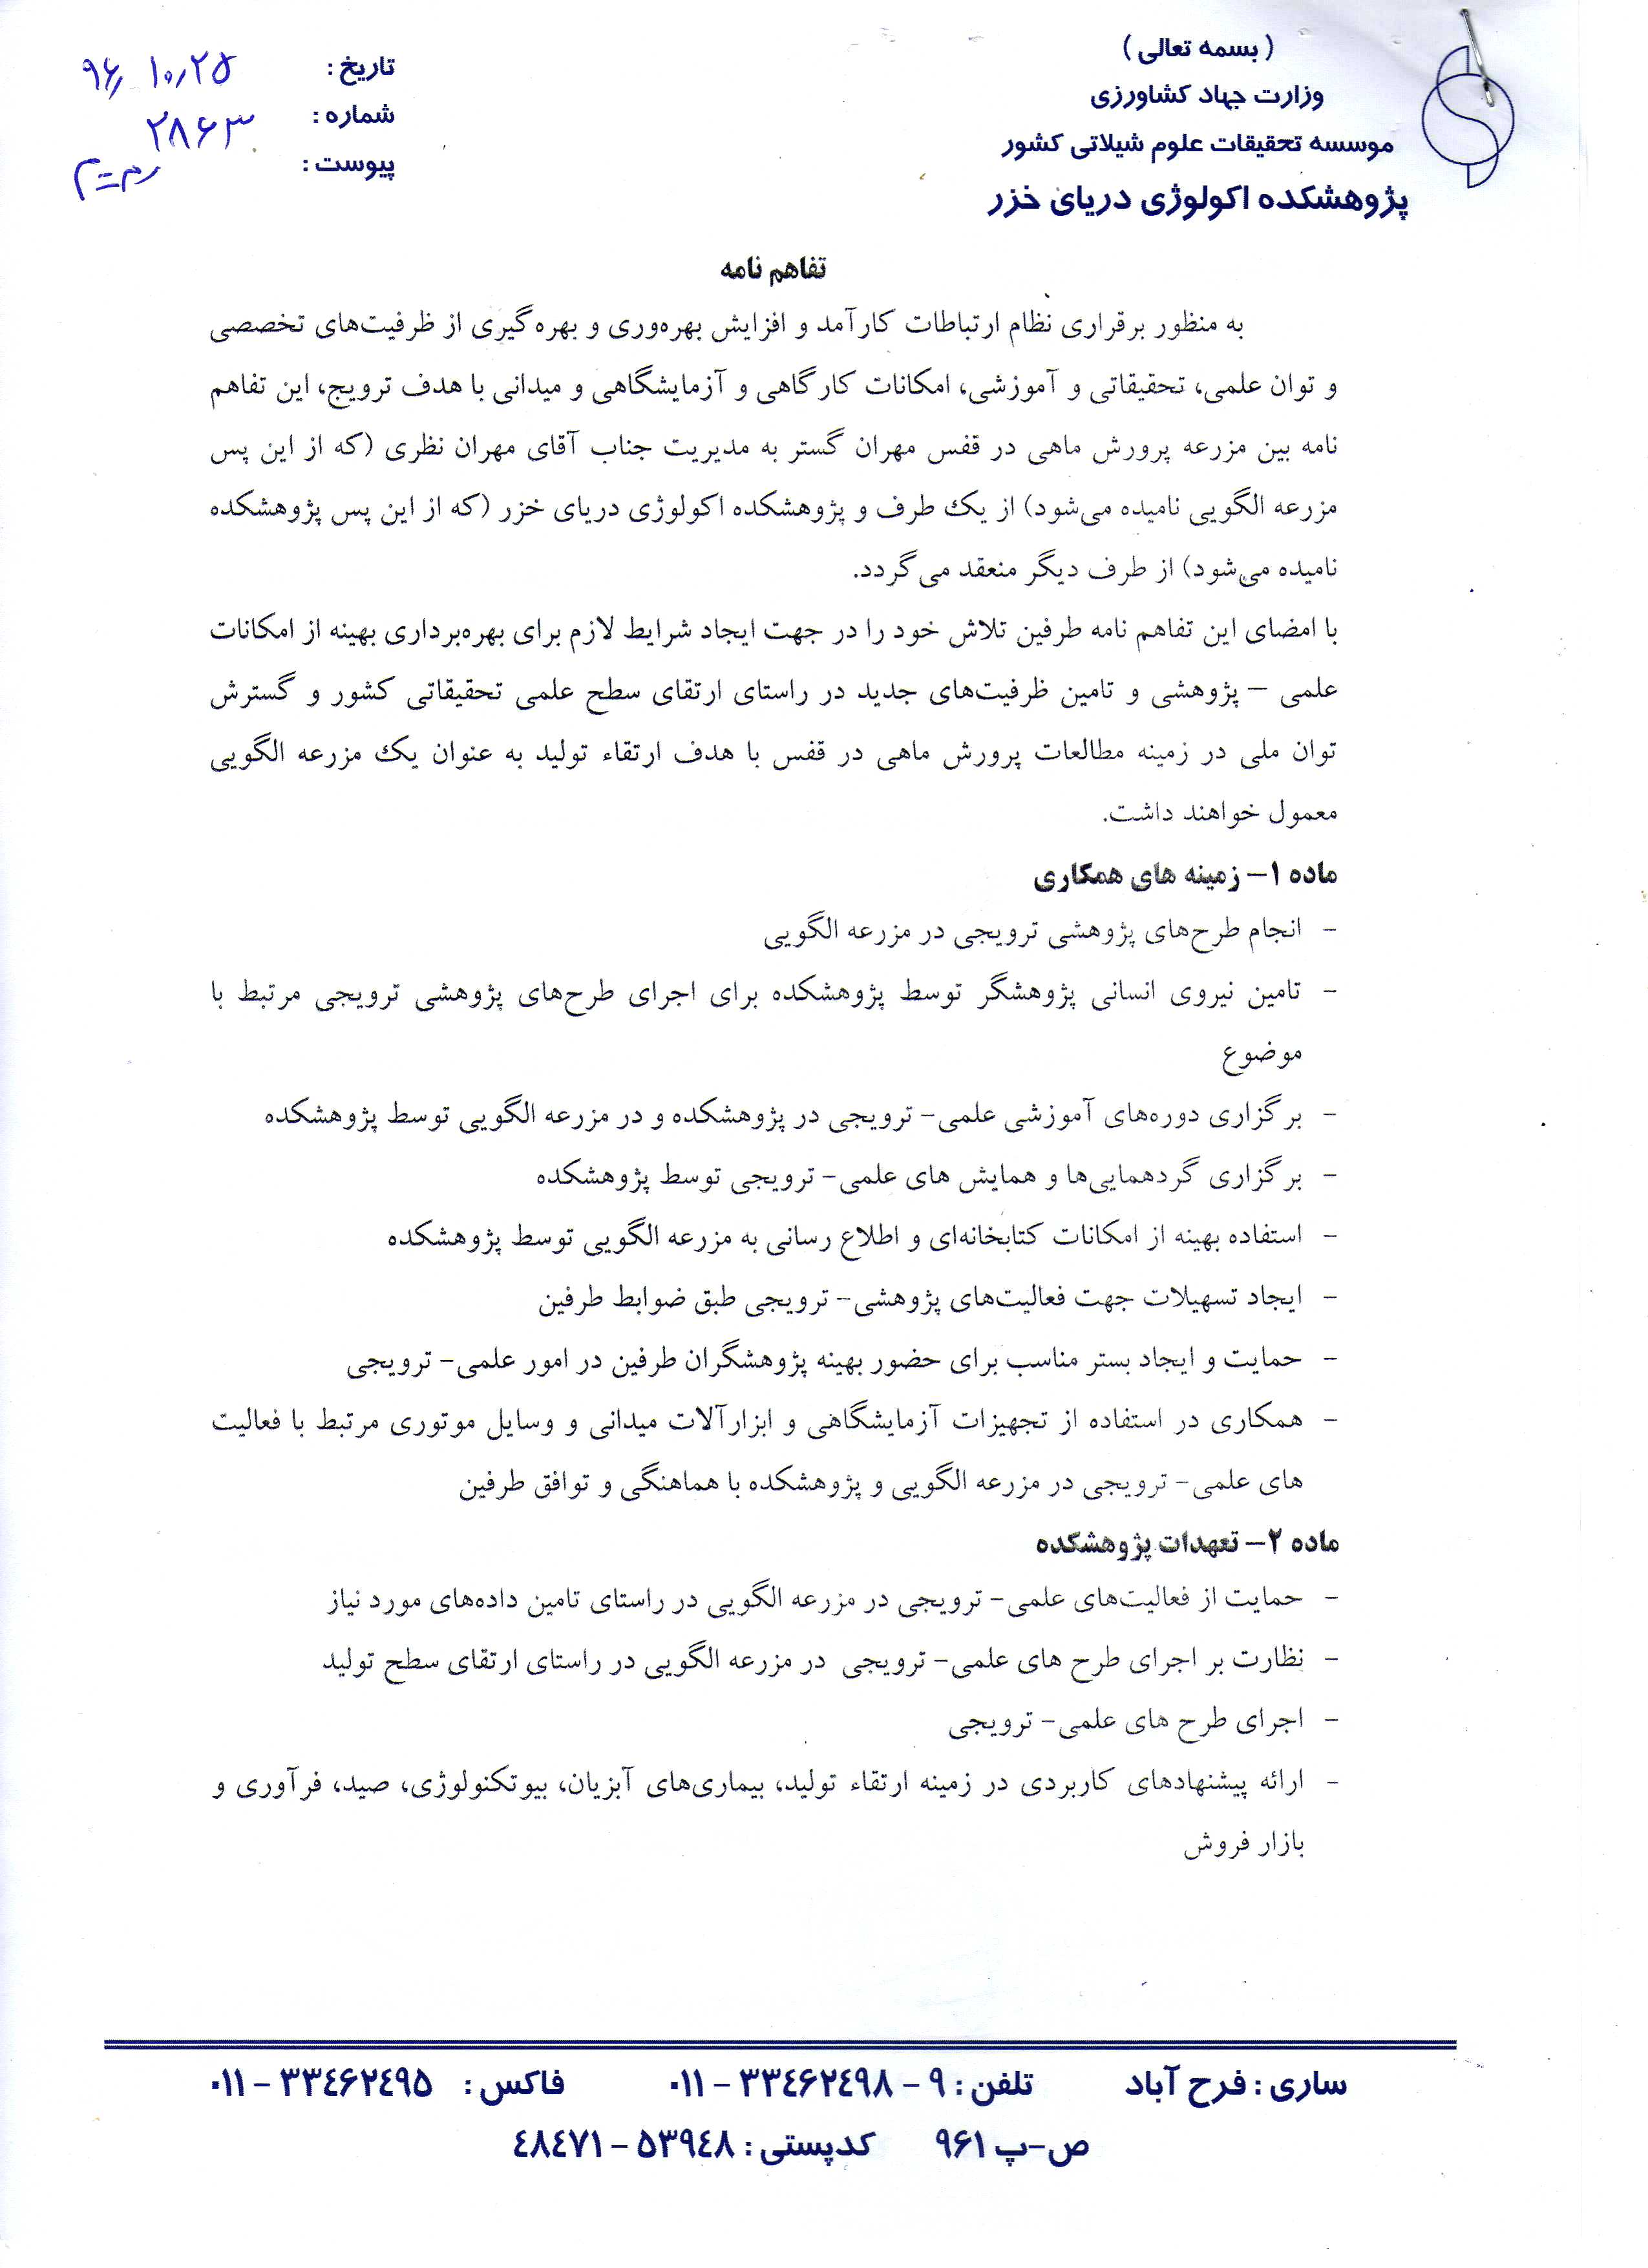 ( بسمه تعالی )
وزارت جهاد کشاورزی
موسسه تحقیقات علوم شیلاتی کشور
پژوهشکده اکولوژی دریای خزر
تاریخ : ۹۶٫۱۰٫۲۵
شماره : ۲۸۶۳
پیوست :
تفاهم نامه
به منظور برقراری نظام ارتباطات کارآمد و افزایش بهره‌وری و بهره‌گیری از ظرفیت‌های تخصصی
و توان علمی، تحقیقاتی و آموزشی، امکانات کارگاهی و آزمایشگاهی و میدانی با هدف ترویج، این تفاهم
نامه بین مزرعه پرورش ماهی در قفس مهران گستر به مدیریت جناب آقای مهران نظری (که از این پس
مزرعه الگویی نامیده می‌شود) از یک طرف و پژوهشکده اکولوژی دریای خزر (که از این پس پژوهشکده
نامیده می‌شود) از طرف دیگر منعقد می‌گردد.
با امضای این تفاهم نامه طرفین تلاش خود را در جهت ایجاد شرایط لازم برای بهره‌برداری بهینه از امکانات
علمی – پژوهشی و تامین ظرفیت‌های جدید در راستای ارتقای سطح علمی تحقیقاتی کشور و گسترش
توان ملی در زمینه مطالعات پرورش ماهی در قفس با هدف ارتقاء تولید به عنوان یک مزرعه الگویی
معمول خواهند داشت.
ماده ۱– زمینه های همکاری
- انجام طرح‌های پژوهشی ترویجی در مزرعه الگویی
- تامین نیروی انسانی پژوهشگر توسط پژوهشکده برای اجرای طرح‌های پژوهشی ترویجی مرتبط با
موضوع
- برگزاری دوره‌های آموزشی علمی- ترویجی در پژوهشکده و در مزرعه الگویی توسط پژوهشکده
- برگزاری گردهمایی‌ها و همایش های علمی- ترویجی توسط پژوهشکده
- استفاده بهینه از امکانات کتابخانه‌ای و اطلاع رسانی به مزرعه الگویی توسط پژوهشکده
- ایجاد تسهیلات جهت فعالیت‌های پژوهشی- ترویجی طبق ضوابط طرفین
- حمایت و ایجاد بستر مناسب برای حضور بهینه پژوهشگران طرفین در امور علمی- ترویجی
- همکاری در استفاده از تجهیزات آزمایشگاهی و ابزارآلات میدانی و وسایل موتوری مرتبط با فعالیت
های علمی- ترویجی در مزرعه الگویی و پژوهشکده با هماهنگی و توافق طرفین
ماده ۲– تعهدات پژوهشکده
- حمایت از فعالیت‌های علمی- ترویجی در مزرعه الگویی در راستای تامین داده‌های مورد نیاز
- نظارت بر اجرای طرح های علمی- ترویجی در مزرعه الگویی در راستای ارتقای سطح تولید
- اجرای طرح های علمی- ترویجی
- ارائه پیشنهادهای کاربردی در زمینه ارتقاء تولید، بیماری‌های آبزیان، بیوتکنولوژی، صید، فرآوری و
بازار فروش
ساری : فرح آباد تلفن : ۹ - ۳۳٤۶۲٤۹۸ - ۰۱۱ فاکس : ۳۳٤۶۲٤۹۵ - ۰۱۱
ص-پ ۹۶۱ کدپستی : ۵۳۹٤۸ - ٤۸٤۷۱